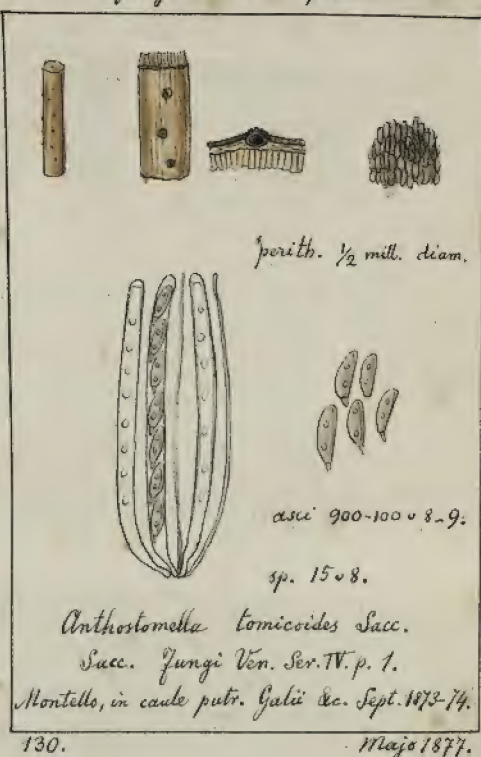 perith. ½ mill. diam.
asci 900-100 v 8-9.
sp. 15 v 8.
Anthostomella tomicoides Sacc.
Sacc. Fungi Ven. Ser. IV. p. 1.
Montello, in caule putr. Galii &c. Sept. 1873-74.
130. Majo 1877.